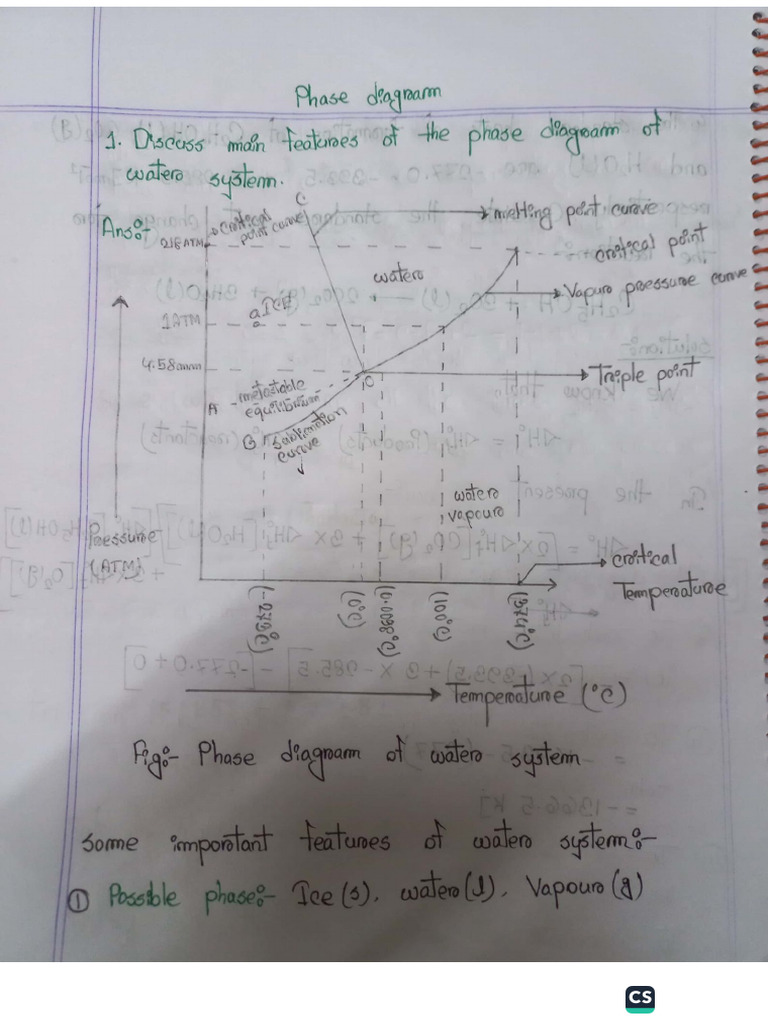 Phase diagram
1. Discuss main features of the phase diagram of
water system.
Ans:-
C
critical
point curve
melting point curve
218 ATM
critical point
water
Vapur pressure curve
a ICE
1 ATM
4.58mm
O
Triple point
A
metastable
equilibrium
B
Sublimation
curve
water
vapour
Pressure
(ATM)
critical
Temperature
(-273°C)
(0°C)
(0.0098°C)
(100°C)
(374°C)
Temperature (°C)
Fig:- Phase diagram of water system
Some important features of water system:-
① Possible phase:- Ice(s), water(l), Vapour(g)
CS